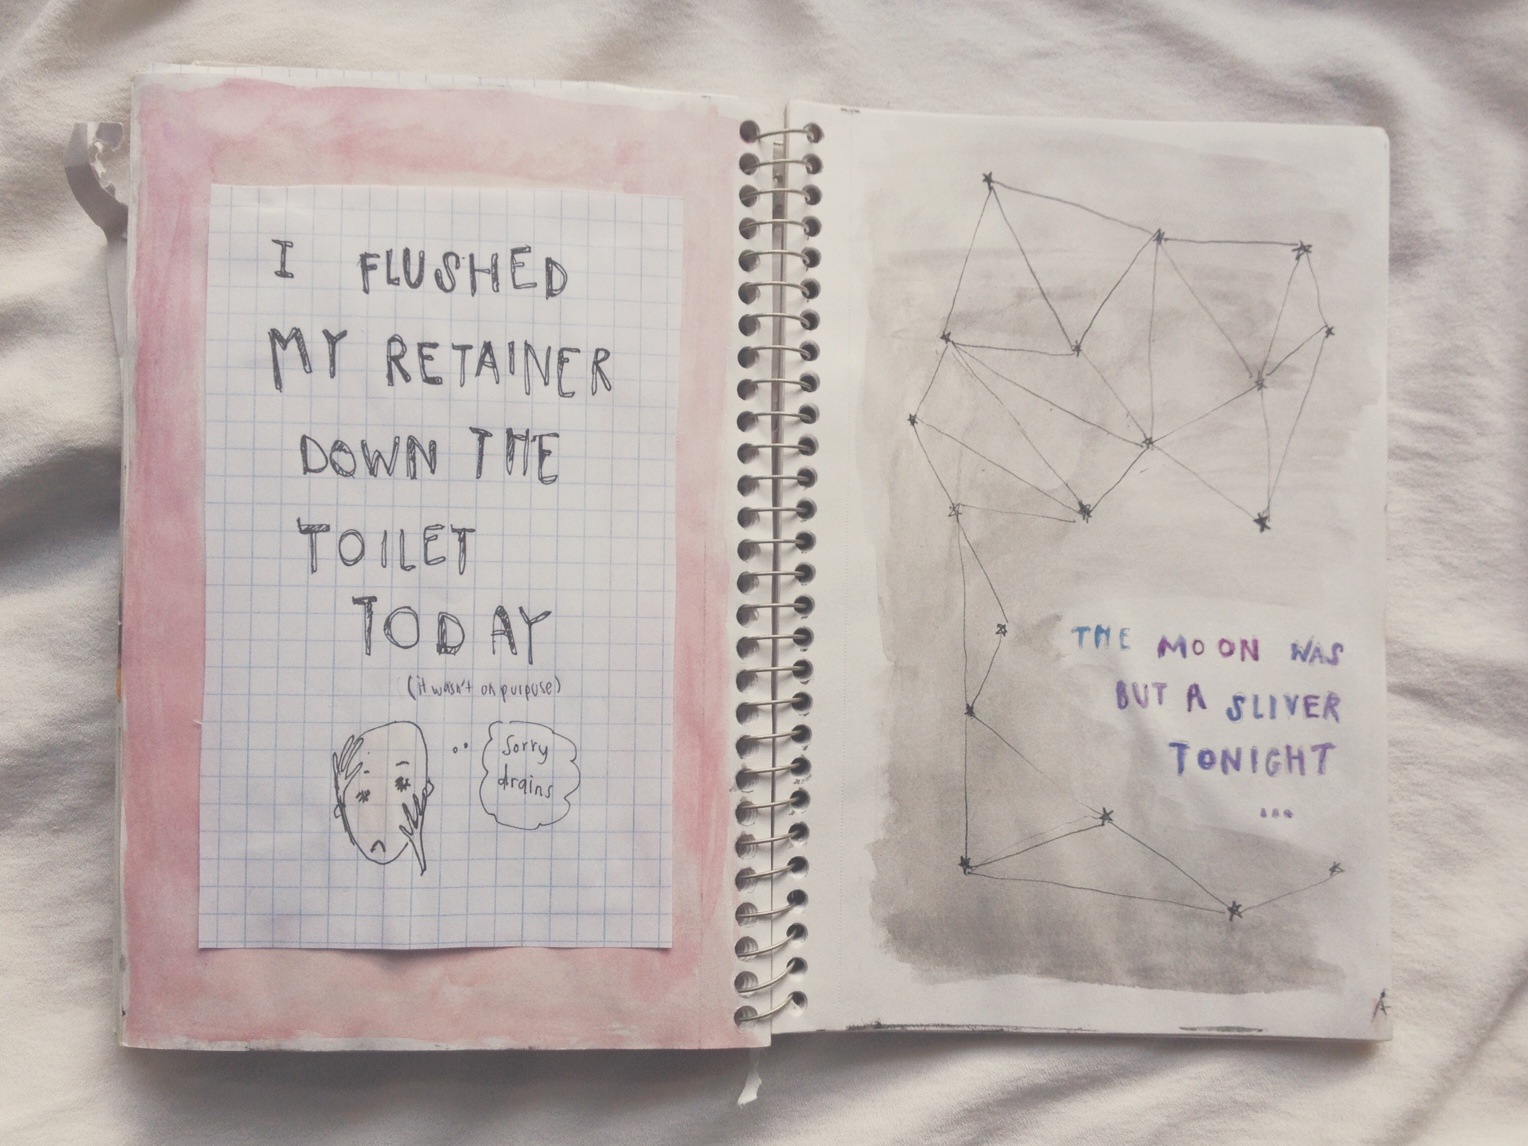 I FLUSHED
MY RETAINER
DOWN THE
TOILET
TODAY
(it wasn't on purpose)
Sorry
drains
THE MOON WAS
BUT A SLIVER
TONIGHT
...